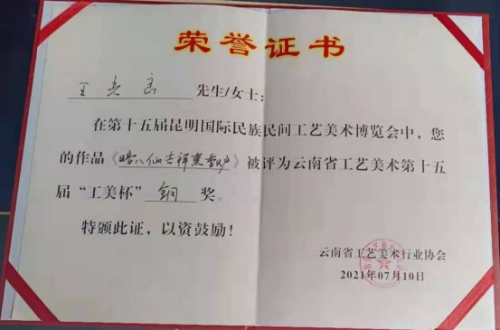 荣誉证书
先生/女士：
在第十五届昆明国际民族民间工艺美术博览会中，您
的作品《暗八仙吉祥熏香炉》被评为云南省工艺美术第十五
届“工美杯”铜奖。
特颁此证，以资鼓励！
云南省工艺美术行业协会
2021年07月10日